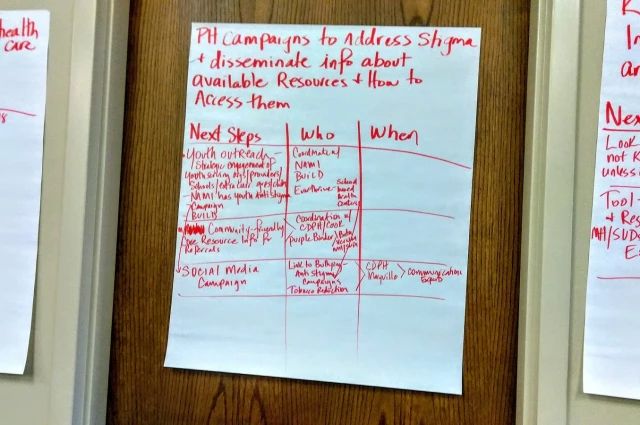 health
care
PH Campaigns to Address Stigma
+ disseminate info about
available Resources + How to
Access them
Next Steps
Who
When
Youth outreach -
Strategic engagement of
youth serving orgs/providers/
Schools/extra curr.
- NAMI has youth anti stigma
Campaign
- BUILD
Coordinate w/
NAMI
BUILD
Everthrive
School
based
health
centers
Community-friendly
Resource Info for
Referrals
Coordination w/
CDPH/Cook
Purple Binder
Social Media
Campaign
Link to Bullying -
Anti Stigma
Campaigns
Tobacco Reduction
CDPH
Communication
In
an
Nex
Look
not K
unless
Tool -
+ Res
MH/SUD
E